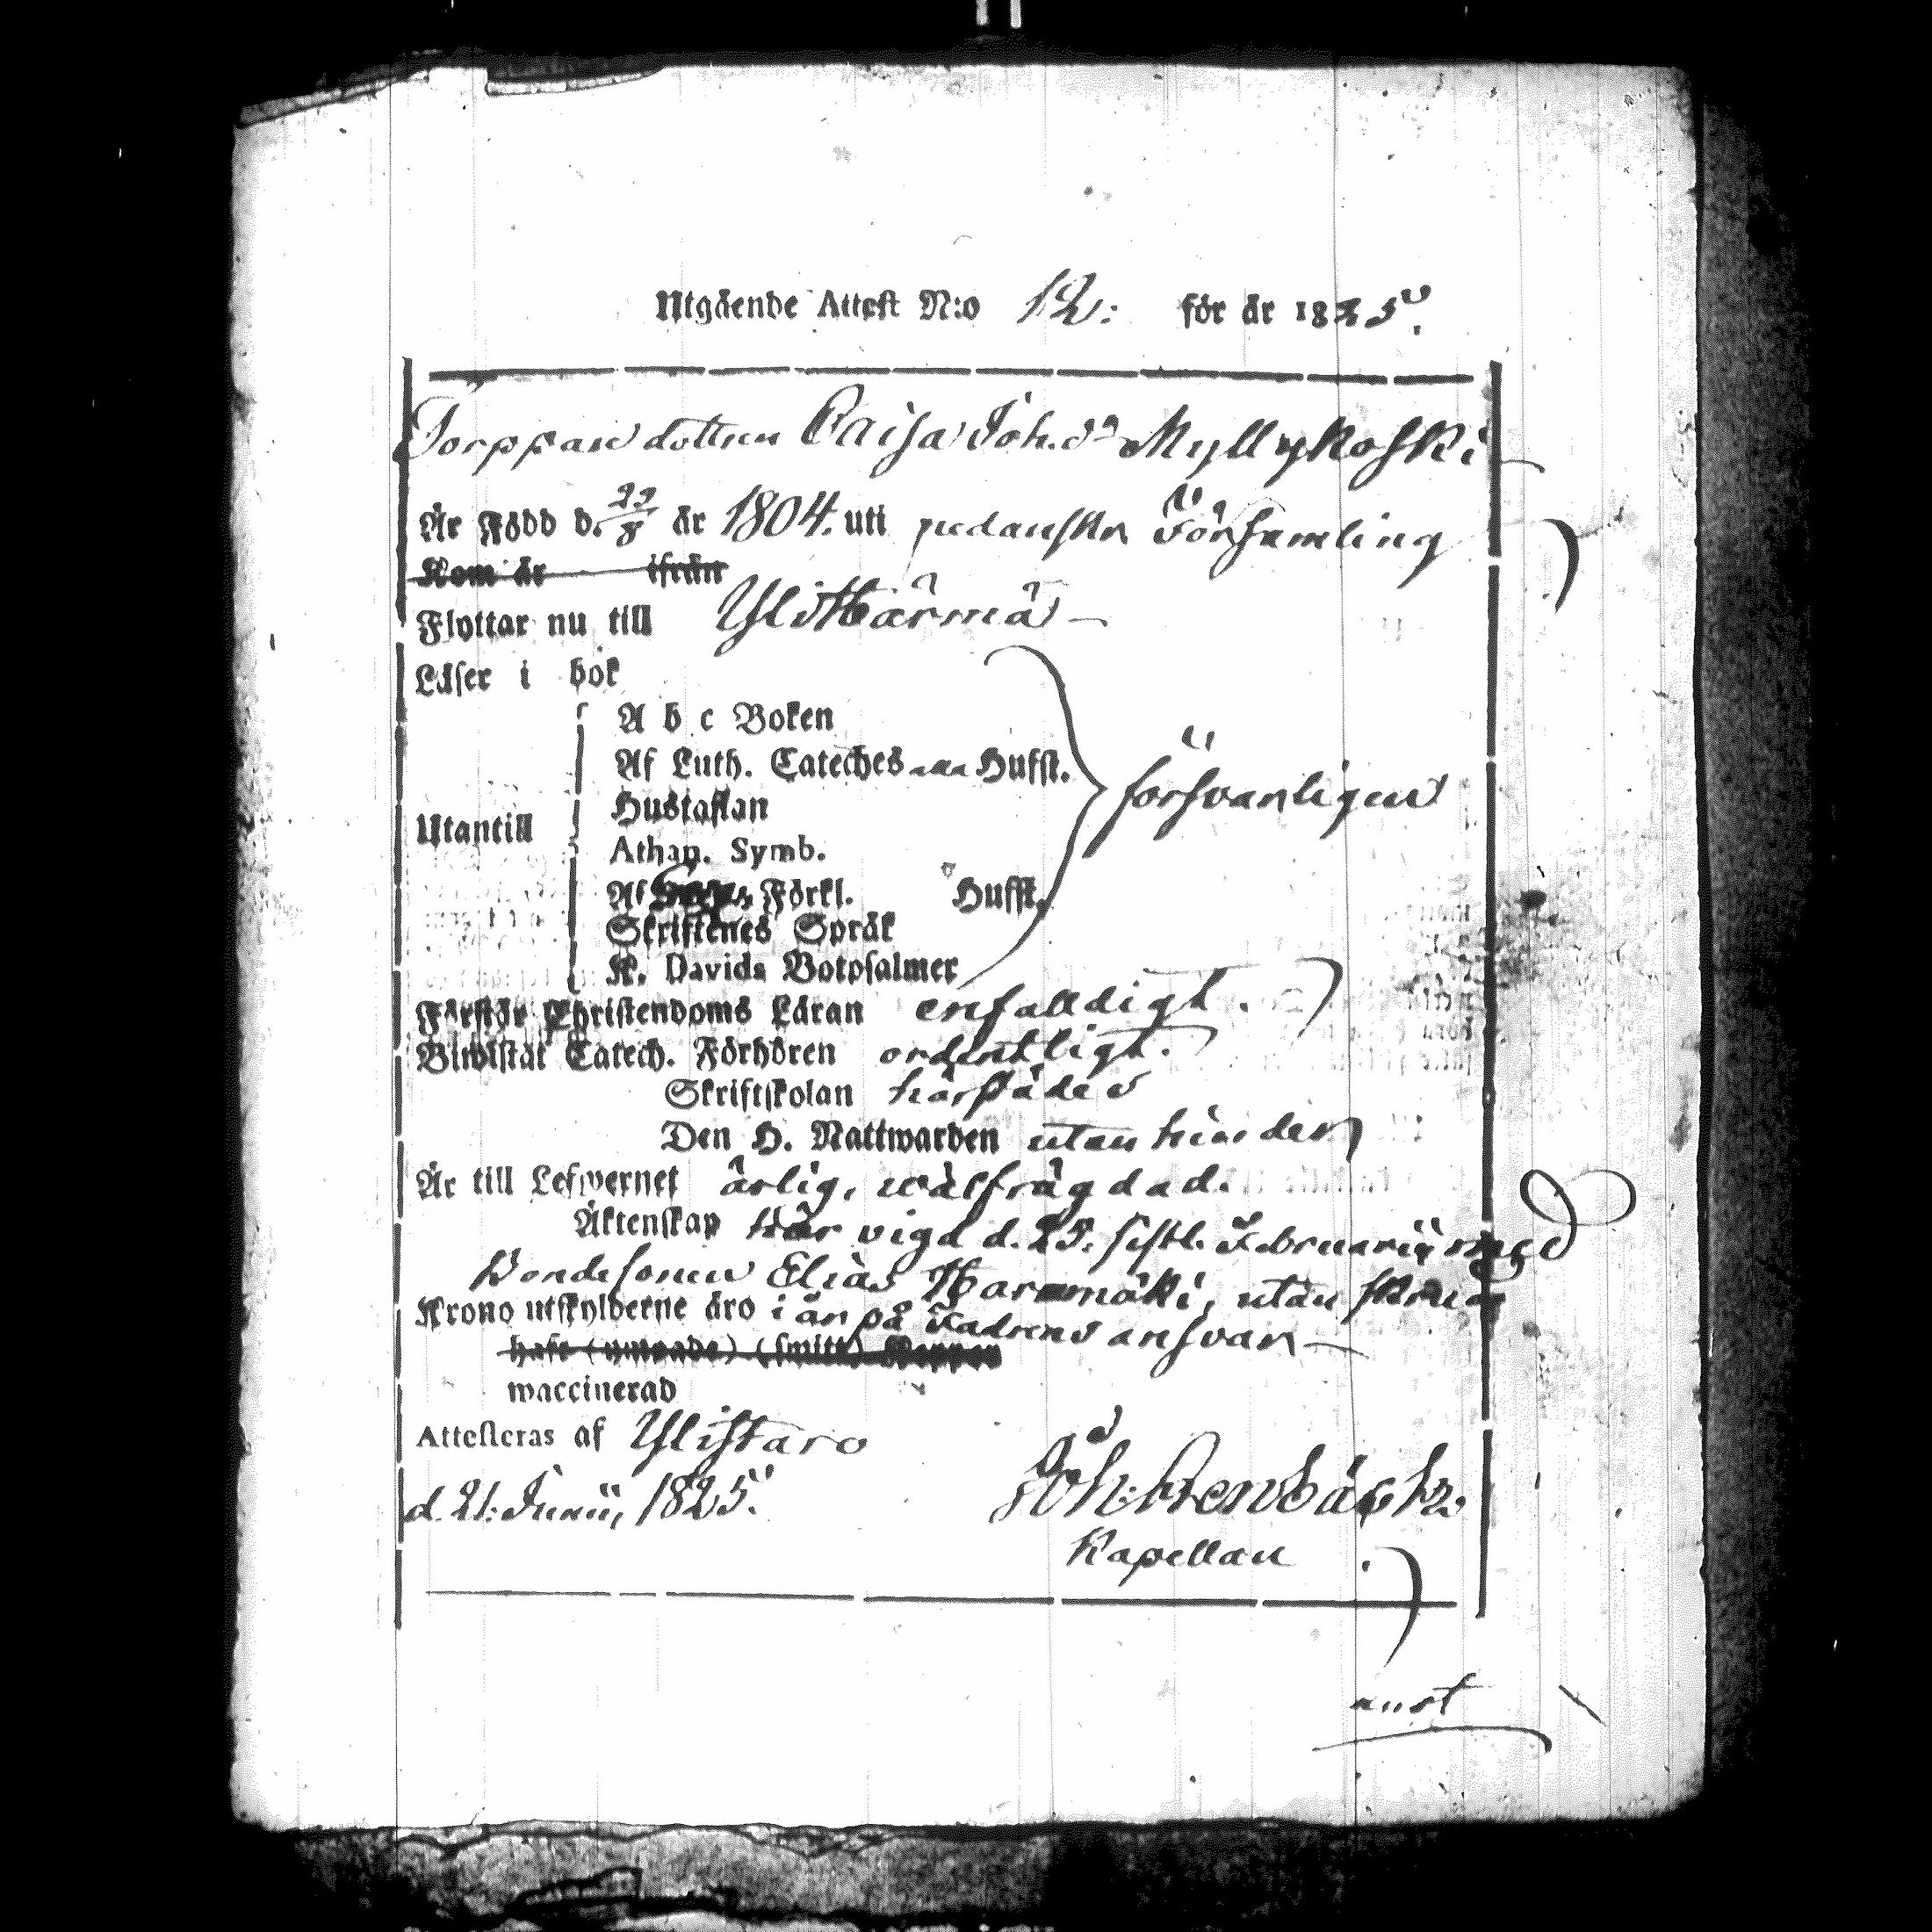 Utgående Attest N:o 12: för år 1825.
Torppare dottren Caisa Joh. dr Myllykoski
År Född d. 22/8 år 1804. uti nedanskr Församling
Kom år ifrån
Flyttar nu till Ylihärmä
Läser i bok
A b c Boken
Af Luth. Cateches alla Hufst.
Hustaflan
försvarligen
Utantill
Athan. Symb.
Af Förkl. Hufst.
Skriftenes Språk
K. Davids Botpsalmer
Förstår Christendoms Läran enfaldigt.
Biwistat Catech. Förhören ordentligt.
Skriftskolan härstädes
Den H. Nattwarden utan hinder
Är till Lefwernet ärlig, wälfrägdad.
Äktenskap här vigd d. 25. sistl. Februarii med
Bondesonen Elias Harmmäki, utan
Krono utskylderne äro i år på Fadrens ansvar
haft (ympade) (smitt) Koppor
waccinerad
Attesteras af Ylistaro
d. 21. Junii, 1825.
Joh: Aenbäck
Kapellan